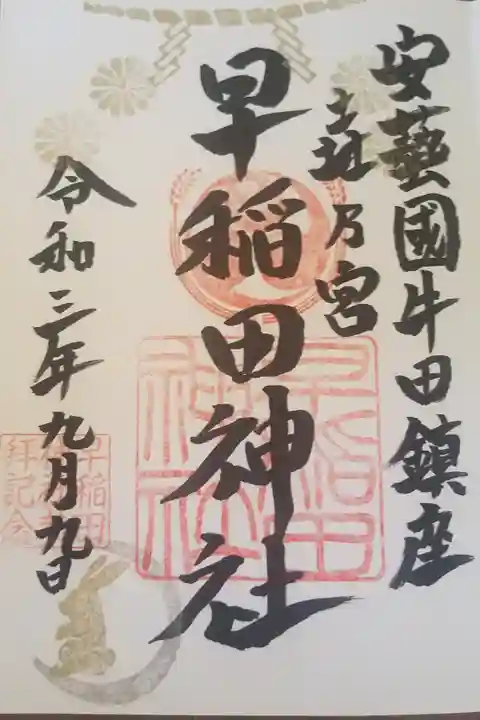 安藝國牛田鎮座
乃宮
早稲田神社
令和三年九月九日
早稲田
神社
早稲田
拝記念